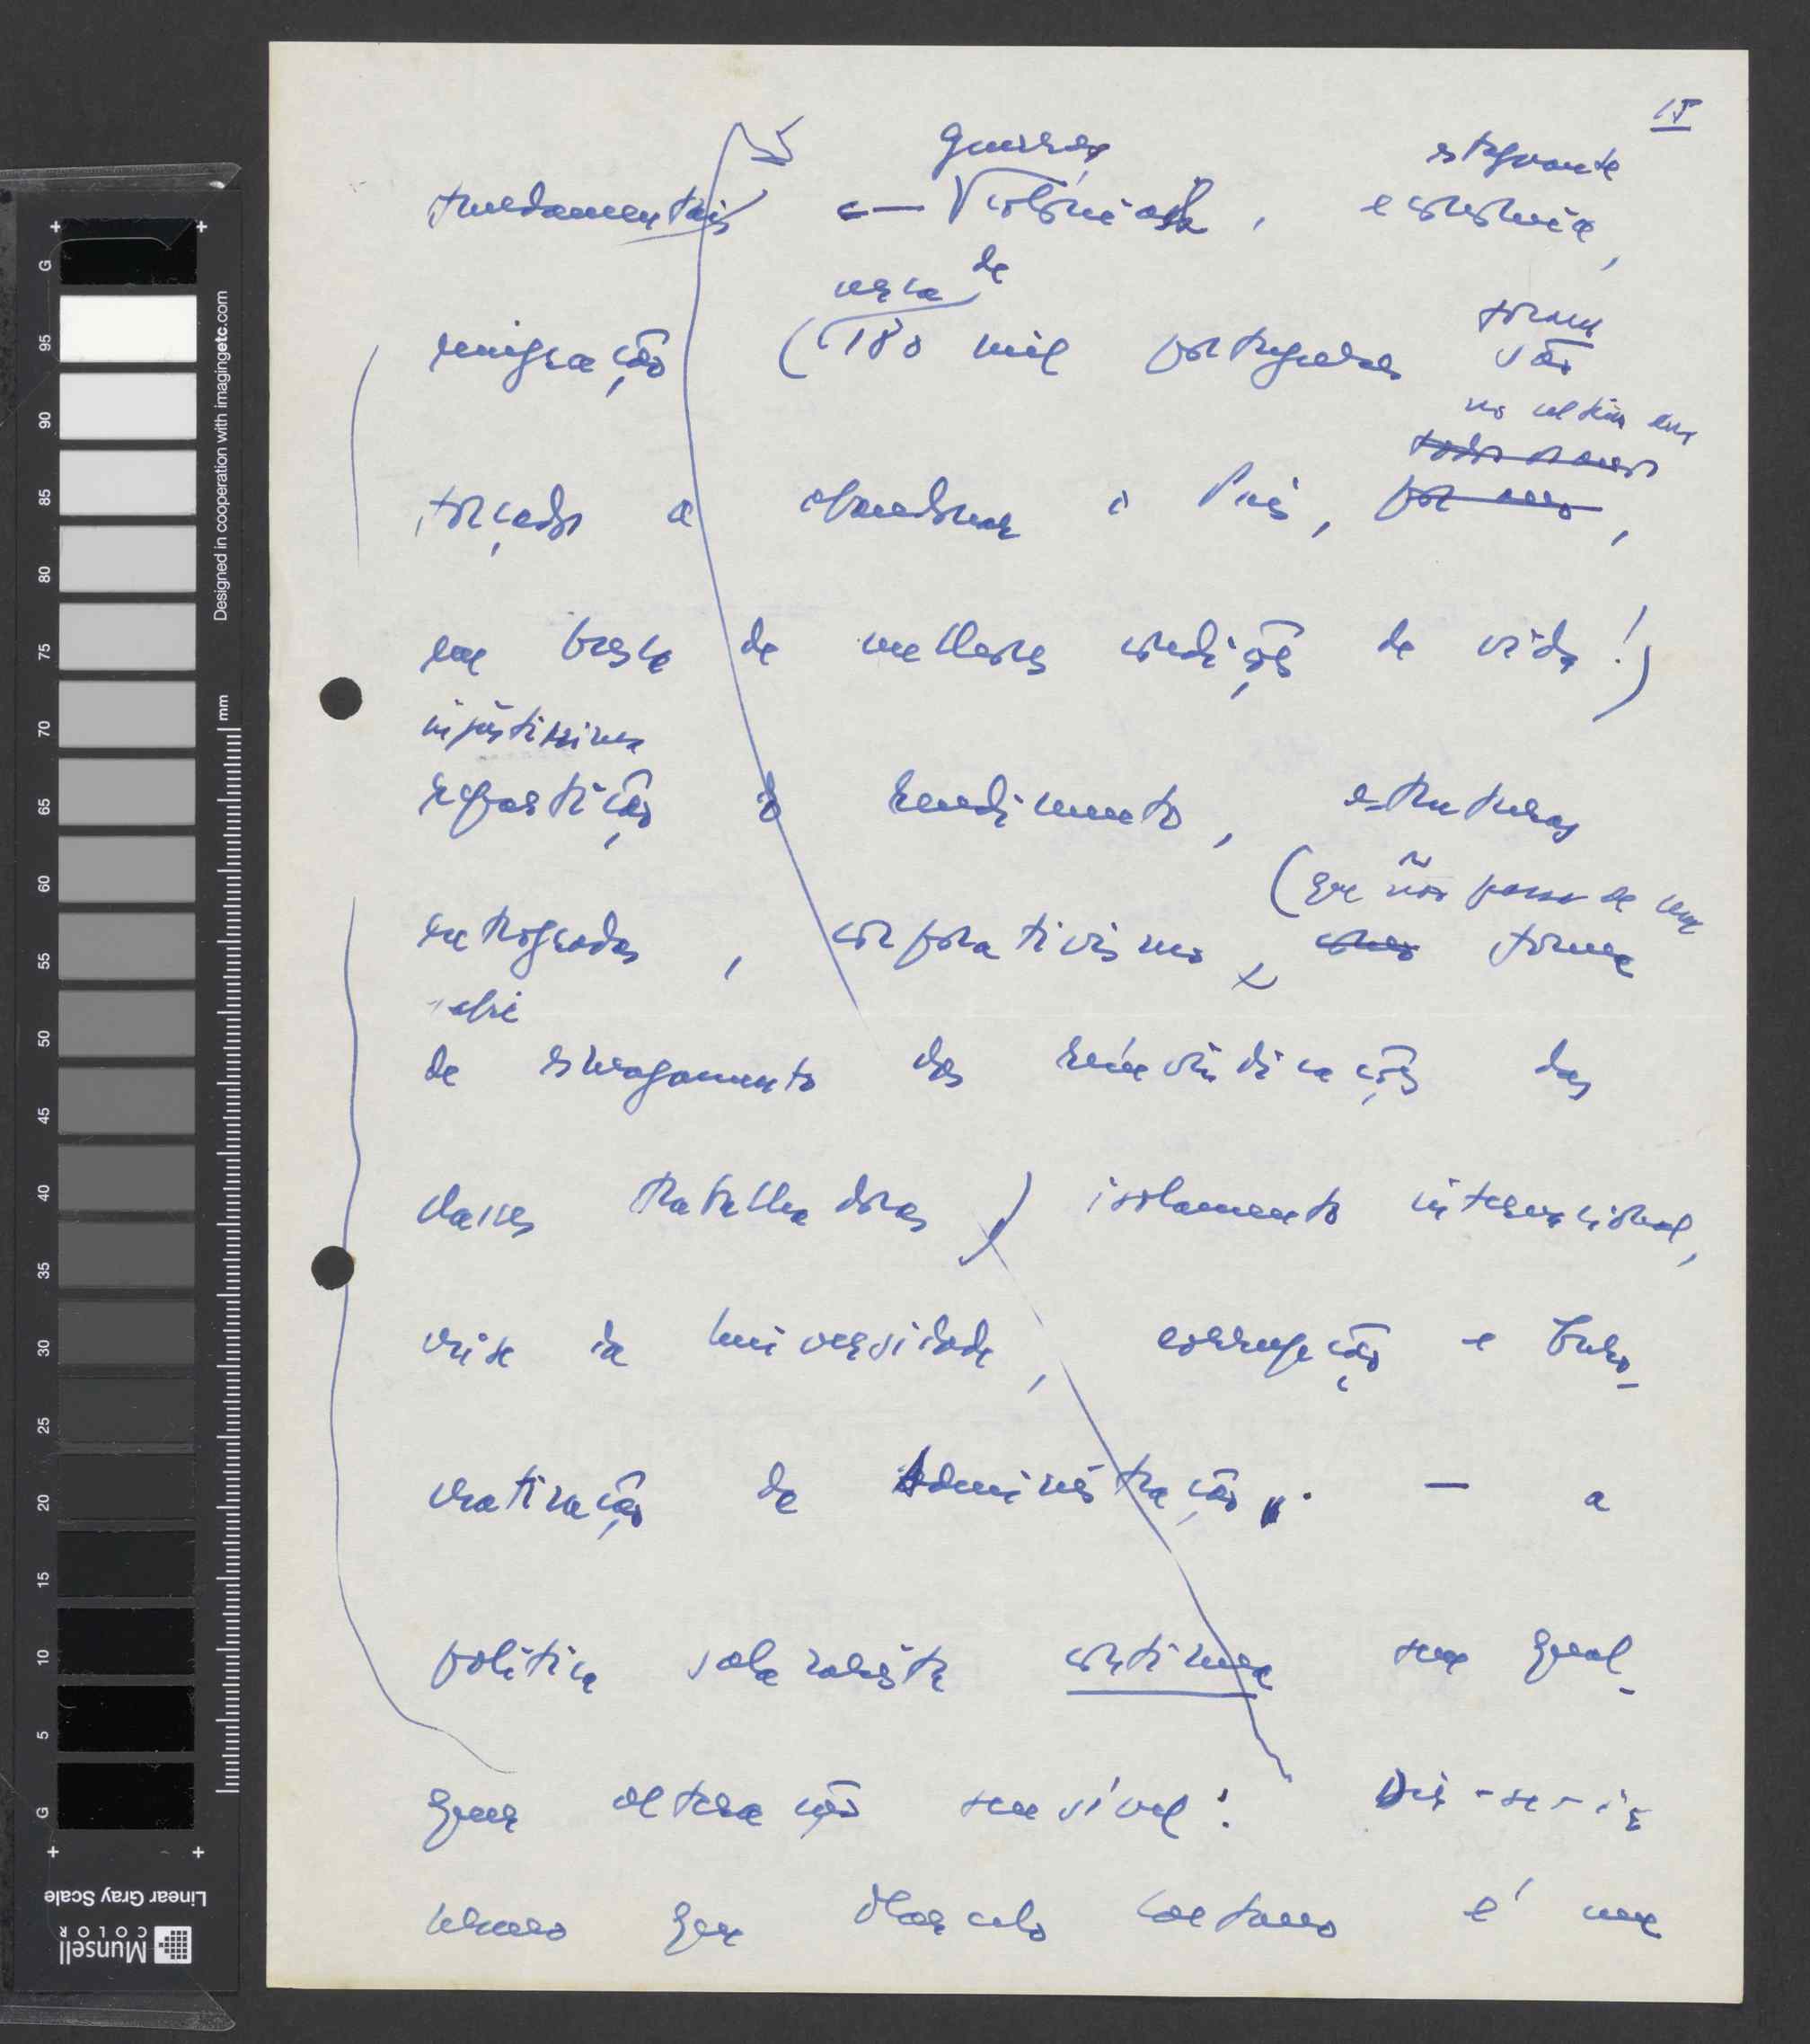 15
guerras estagnante
fundamentais — coloniais, economia,
cerca de foram
emigração (180 mil portugueses são
no ultimo ano
todos os anos
forçados a abandonar o País, por ano,
em busca de melhores condições de vida!)
injustissima
repartição do rendimento, estruturas
(que não passa de uma
retrogradas, corporativismo, como forma
de esmagamento das reivindicações das
classes trabalhadoras) isolamento internacional,
crise da Universidade, corrupção e buro-
cratização da Administração. — a
política salazarista continua sem qual-
quer alteração sensível! Dir-se-ia
mesmo que Marcelo Caetano é um
Designed in cooperation with imagingetc.com
mm
G 95 90 85 80 75 70 65 60 55 50 45 40 35 30 25 20 15 10 5 G
Linear Gray Scale
Munsell
COLOR